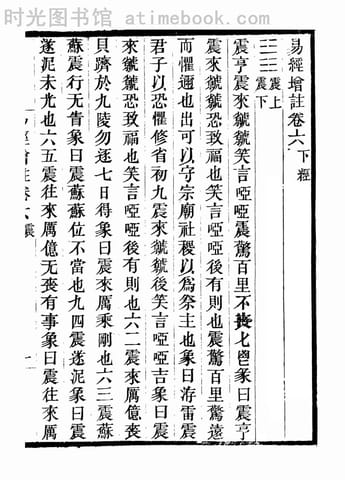 时光图书馆 - atimebook.com
易經增註卷六 下經
震上
震下
震亨震來虩虩笑言啞啞震驚百里不喪匕鬯彖曰震亨
震來虩虩恐致福也笑言啞啞後有則也震驚百里驚遠
而懼邇也出可以守宗廟社稷以爲祭主也象曰洊雷震
君子以恐懼修省初九震來虩虩後笑言啞啞吉象曰震
來虩虩恐致福也笑言啞啞後有則也六二震來厲億喪
貝躋於九陵勿逐七日得象曰震來厲乘剛也六三震蘇
蘇震行无眚象曰震蘇蘇位不當也九四震遂泥象曰震
遂泥未光也六五震往來厲億无喪有事象曰震往來厲
易經增註卷六 震 一